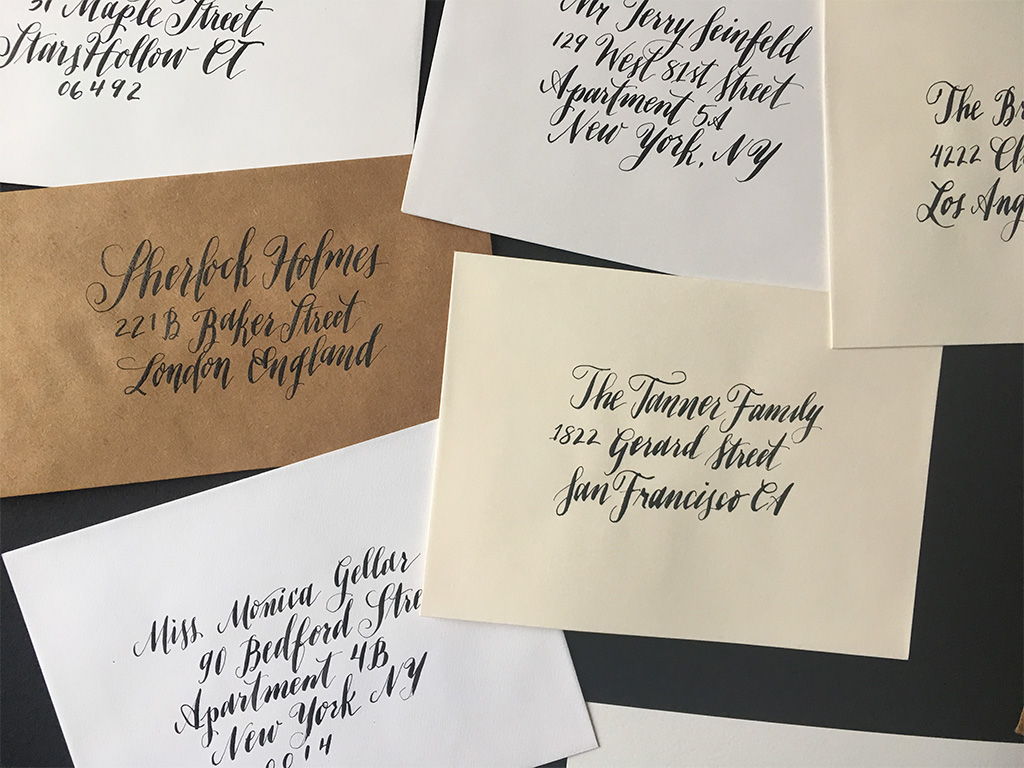 31 Maple Street
Stars Hollow CT
06492
Mr Jerry Seinfeld
129 West 81st Street
Apartment 5A
New York, NY
The Br
4222 Cl
Los Ang
Sherlock Holmes
221B Baker Street
London England
The Tanner Family
1822 Gerard Street
San Francisco CA
Miss Monica Gellar
90 Bedford Stre
Apartment 4B
New York NY